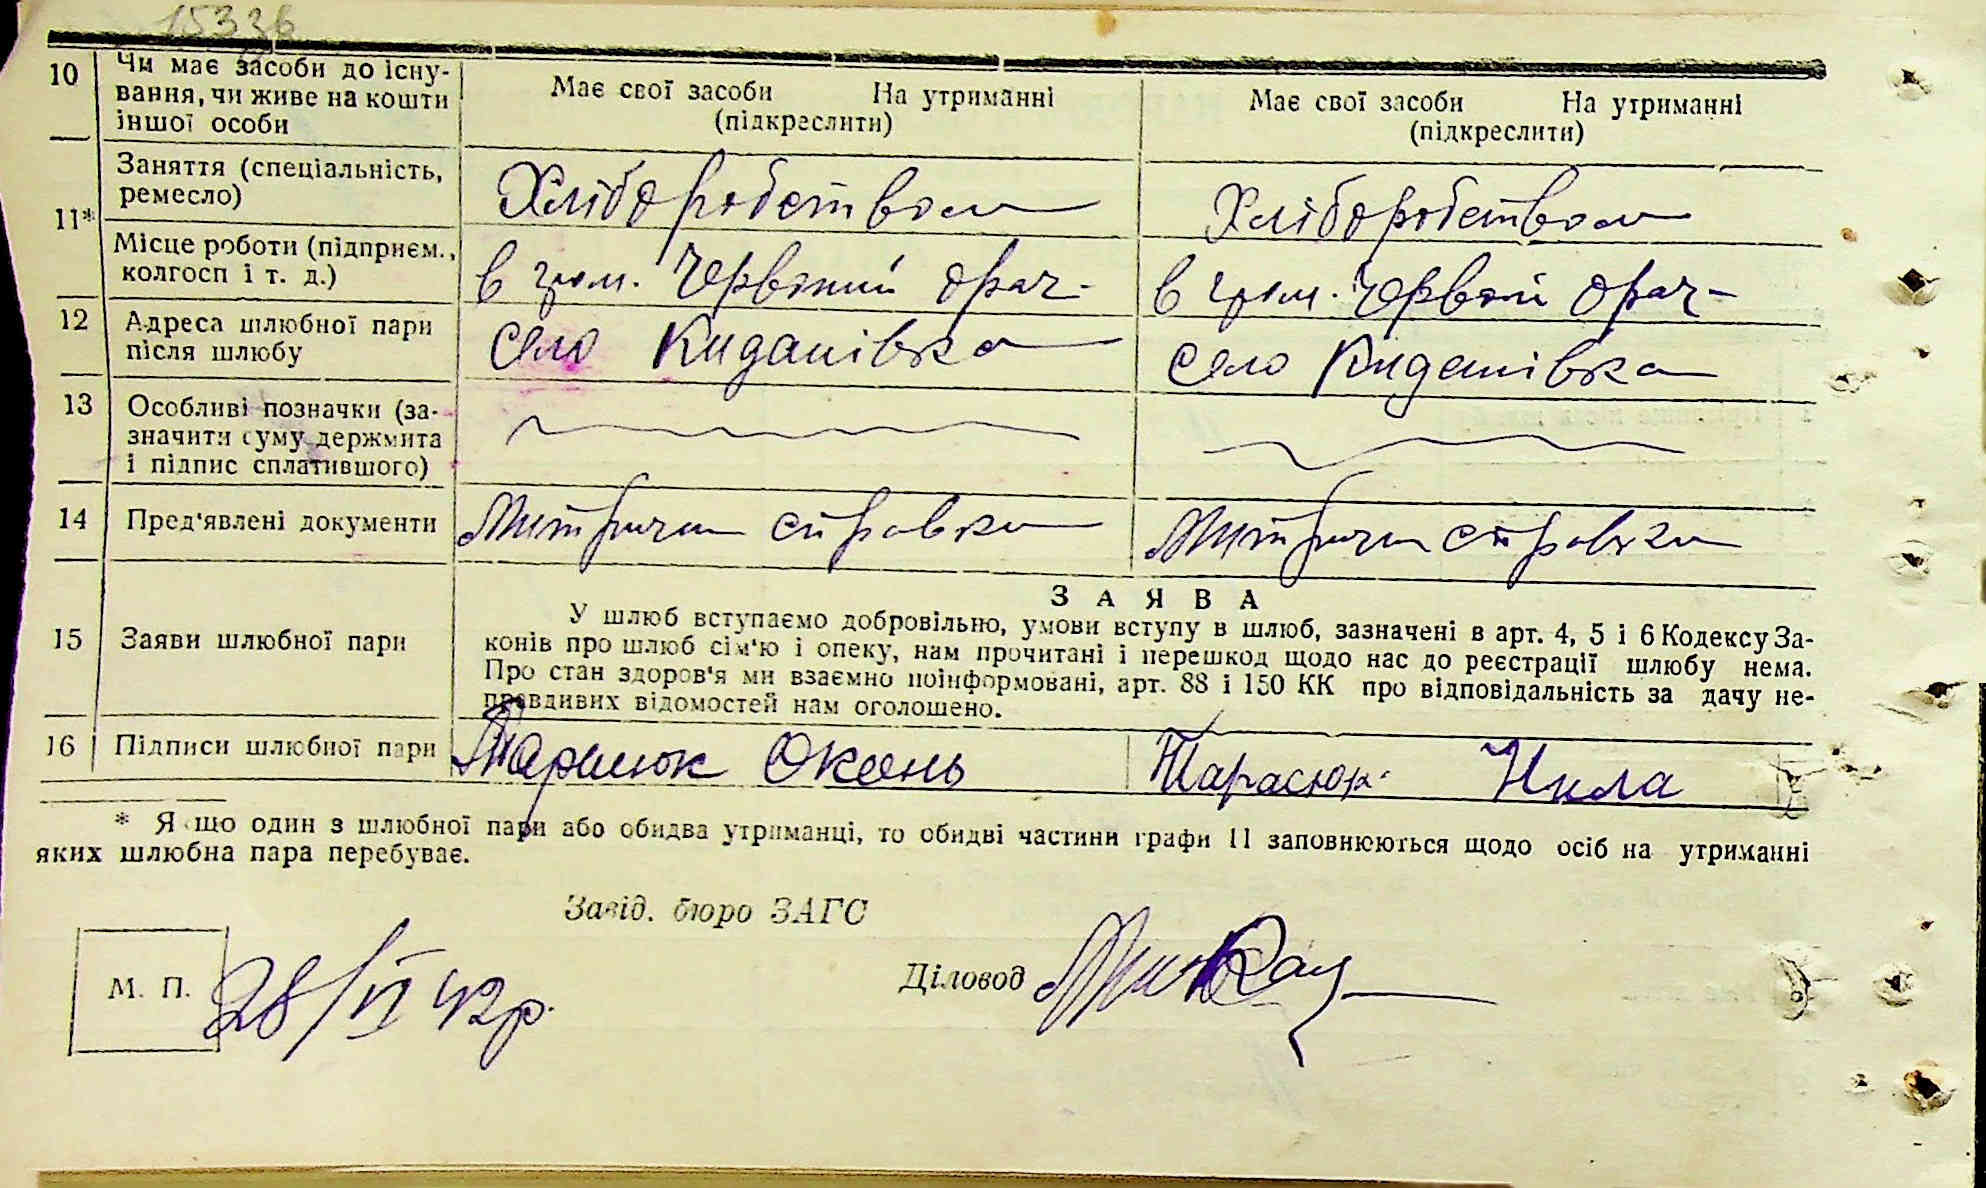 15336
10 Чи має засоби до існу-
вання, чи живе на кошти
іншої особи
Має свої засоби На утриманні
(підкреслити)
Має свої засоби На утриманні
(підкреслити)
11*
Заняття (спеціальність,
ремесло)
Хліборобством
Хліборобством
Місце роботи (підприєм.,
колгосп і т. д.)
в гром. Червоний орач-
в гром. Червон орач-
12 Адреса шлюбної пари
після шлюбу
село Киданівка
село Киданівка
13 Особливі позначки (за-
значити суму держмита
і підпис сплатившого)
14 Пред'явлені документи
Метричн справки
Метричн справки
15 Заяви шлюбної пари
ЗАЯВА
У шлюб вступаємо добровільно, умови вступу в шлюб, зазначені в арт. 4, 5 і 6 Кодексу За-
конів про шлюб сім'ю і опеку, нам прочитані і перешкод щодо нас до реєстрації шлюбу нема.
Про стан здоров'я ми взаємно поінформовані, арт. 88 і 150 КК про відповідальність за дачу не-
правдивих відомостей нам оголошено.
16 Підписи шлюбної пари
Тарасюк
* Якщо один з шлюбної пари або обидва утриманці, то обидві частини графи 11 заповнюються щодо осіб на утриманні
яких шлюбна пара перебуває.
Завід. бюро ЗАГС
М. П.
28/VI 42р.
Діловод